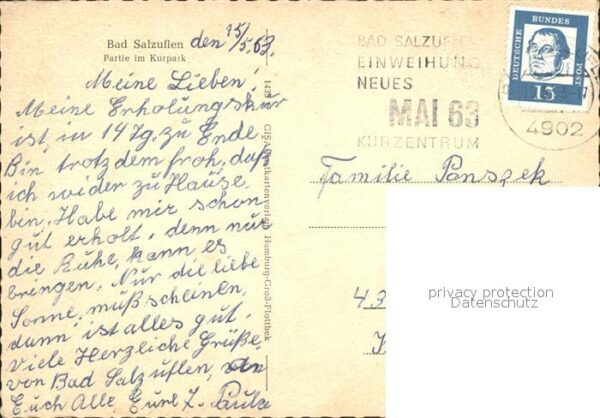 Bad Salzuflen den 15/5.63.
Partie im Kurpark
Meine Lieben!
Meine Erholungskur
ist, in 14 Tg. zu Ende
Bin trotzdem froh, daß
ich wider zu Hause
bin. Habe mir schon
gut erholt, denn nur
die Ruhe, kann es
bringen. Nur die liebe
Sonne, muß scheinen,
dann ist alles gut.
Viele Herzliche Grüße,
von Bad Salzuflen, an
Euch Alle Eure
GISA Postkartenverlag Hamburg-Groß-Flottbek
BAD SALZUFLEN
EINWEIHUNG
NEUES
MAI 63
KURZENTRUM
DEUTSCHE BUNDES POST
15
4902
Familie Panszek
privacy protection
Datenschutz